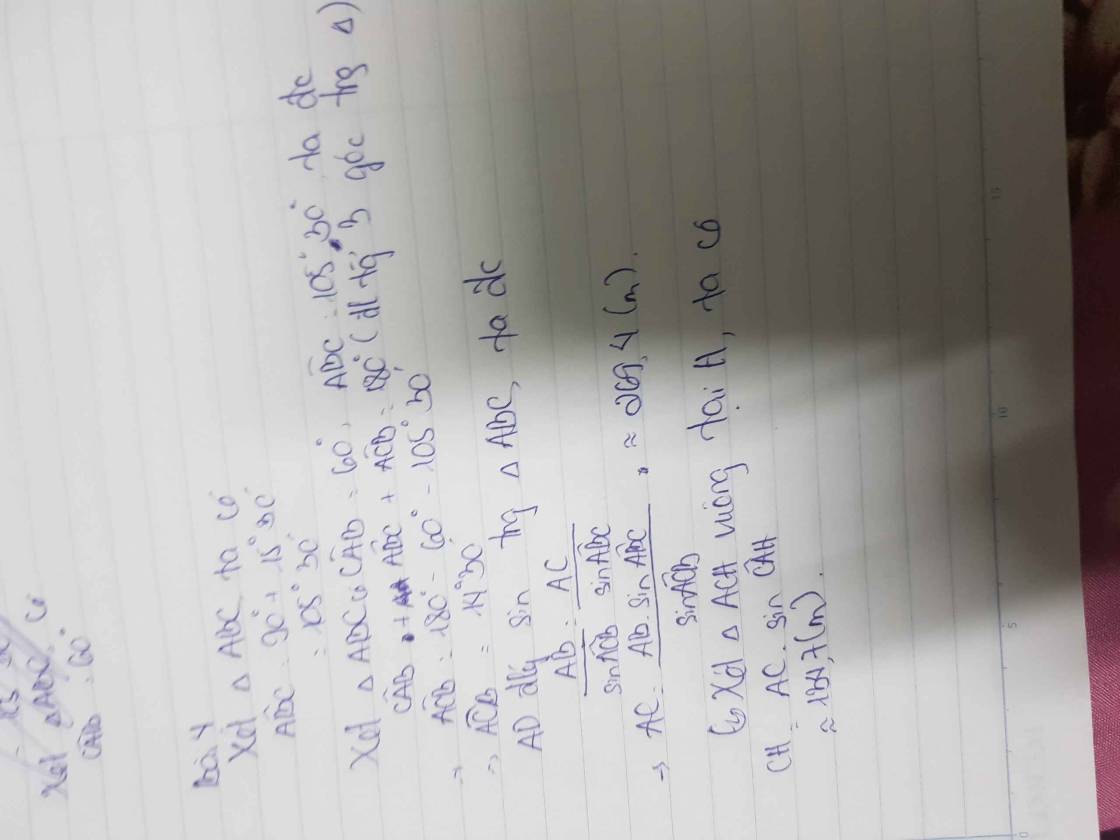 Xét ΔABC có
CAB = 60°
Bài 4
Xét Δ ABC ta có
ABC = 90° + 15° 30'
= 105° 30'
Xét Δ ABC có CAB = 60°, ABC = 105° 30', ta dc
CAB + ABC + ACB = 180° (đl tg 3 góc trg Δ)
→ ACB = 180° - 60° - 105° 30'
→ ACB = 14° 30'
AD đlý sin trg Δ ABC, ta dc
AB = AC
sin ACB sin ABC
→ AC = AB. sin ABC ≈ 269,4 (m).
sin ACB
Xét Δ ACH vuông tại H, ta có
CH = AC. sin CAH
≈ 134,7 (m).
5
10
15